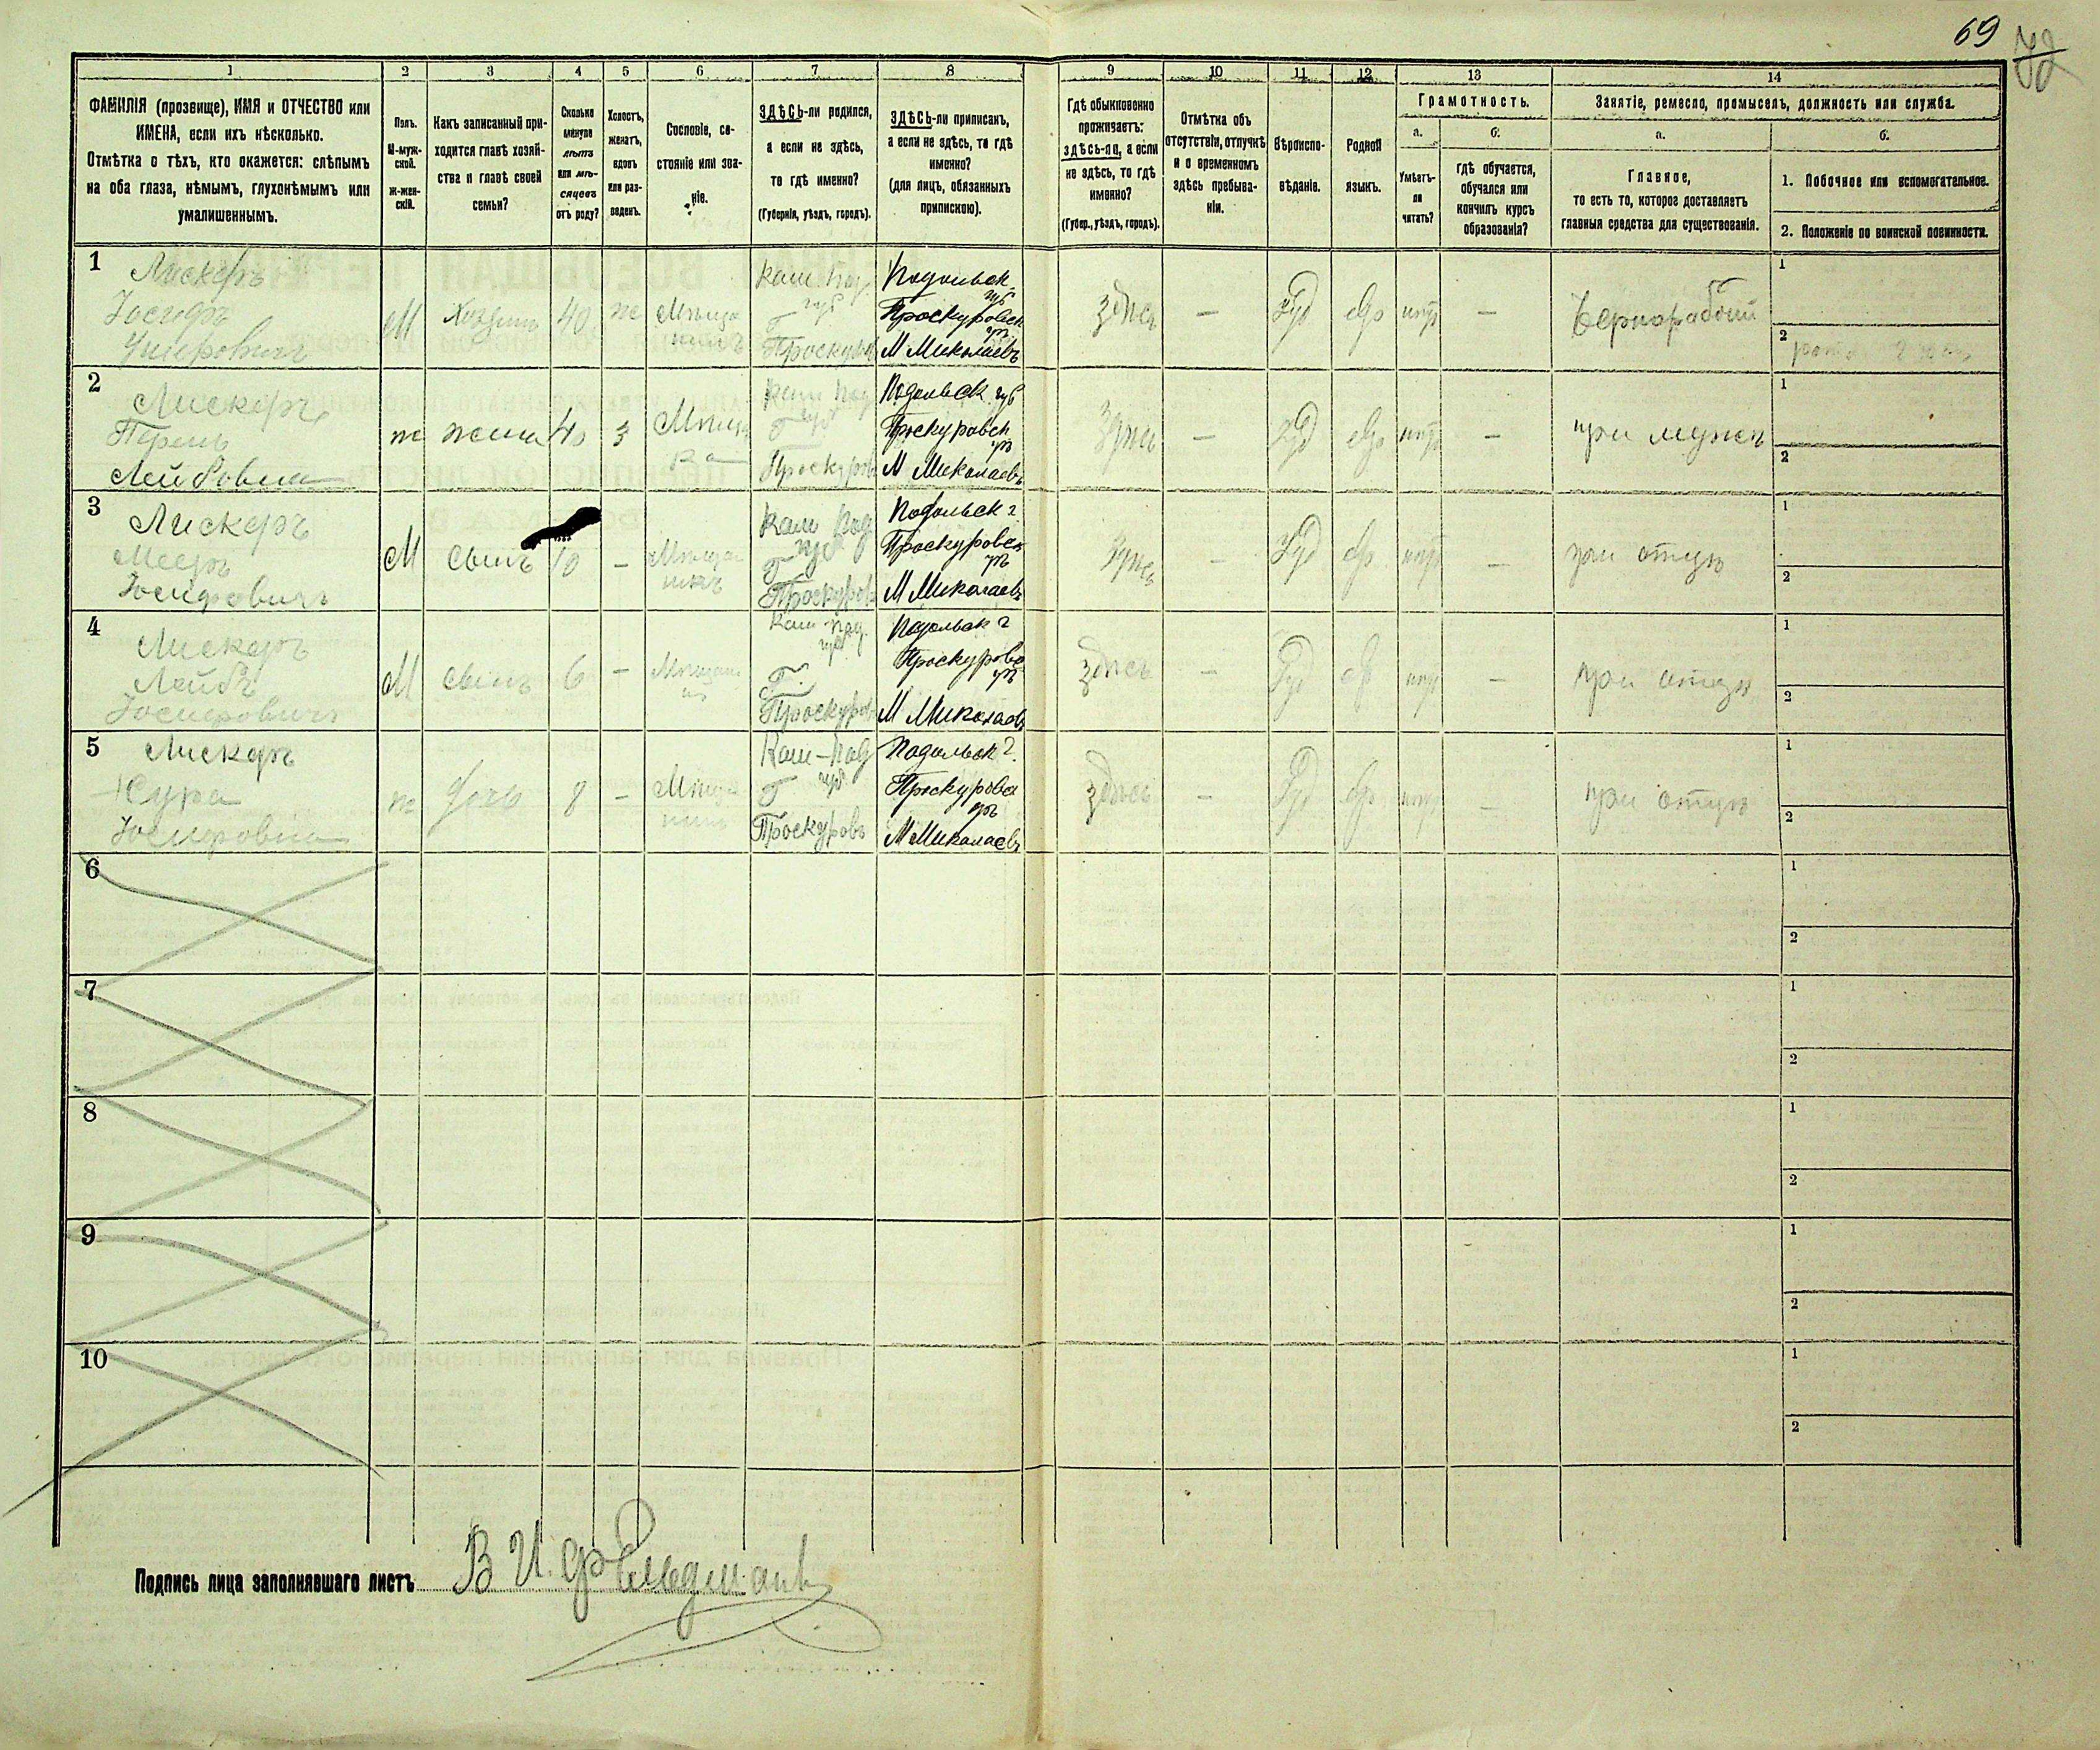 69
72
1 2 3 4 5 6 7 8 9 10 11 12 13 14
ФАМИЛІЯ (прозвище), ИМЯ и ОТЧЕСТВО или
ИМЕНА, если ихъ нѣсколько.
Отмѣтка о тѣхъ, кто окажется: слѣпымъ
на оба глаза, нѣмымъ, глухонѣмымъ или
умалишеннымъ.
Полъ.
М-муж-
ской.
ж-жен-
скій.
Какъ записанный при-
ходится главѣ хозяй-
ства и главѣ своей
семьи?
Сколько
минуло
лѣтъ
или мѣ-
сяцевъ
отъ роду?
Холостъ,
женатъ,
вдовъ
или раз-
веденъ.
Сословіе, со-
стояніе или зва-
ніе.
ЗДѢСЬ-ли родился,
а если не здѣсь,
то гдѣ именно?
(Губернія, уѣздъ, городъ).
ЗДѢСЬ-ли приписанъ,
а если не здѣсь, то гдѣ
именно?
(для лицъ, обязанныхъ
припискою).
Гдѣ обыкновенно
проживаетъ:
здѣсь-ли, а если
не здѣсь, то гдѣ
именно?
(Губер., уѣздъ, городъ).
Отмѣтка объ
отсутствіи, отлучкѣ
и о временномъ
здѣсь пребыва-
ніи.
Вѣроиспо-
вѣданіе.
Родной
языкъ.
Грамотность.
а.
Умѣетъ-
ли
читать?
б.
гдѣ обучается,
обучался или
кончилъ курсъ
образованія?
Занятіе, ремесло, промыселъ, должность или служба.
а.
Главное,
то есть то, которое доставляетъ
главныя средства для существованія.
б.
1. Побочное или вспомогательное.
2. Положеніе по воинской повинности.
1
Лискеръ
Іосифъ
Ушеровичъ
М
Хозяинъ
40
ж
Мѣща
нинъ
Кам. Под.
губ
г
Проскуровъ
Подольск.
губ
Проскуровск
уѣ
М Миколаевъ
здѣсь
—
Іуд
Евр
нѣтъ
—
Чернорабочій
1
2
2
Лискеръ
Перель
Лейбовна
ж
жена
40
3
Мѣщ
ка
Кам Под
губ
г
Проскуровъ
Подольск губ
Проскуровск
уѣ
М Миколаевъ
Здѣсь
—
Іуд
Евр
нѣтъ
—
при мужѣ
1
2
3
Лискеръ
Мееръ
Іосифовичъ
М
сынъ
10
—
Мѣща
нинъ
Кам Под
губ
г
Проскуровъ
Подольск г
Проскуровск
уѣ
М Миколаевъ
Здѣсь
—
Іуд
Евр
нѣтъ
—
при отцѣ
1
2
4
Лискеръ
Лейбъ
Іосифовичъ
М
сынъ
6
—
Мѣщани
нъ
Кам-Под.
губ
г.
Проскуровъ
Подольск г
Проскуровс
уѣ
М Миколаевъ
здѣсь
—
Іуд
Евр
нѣтъ
—
при отцѣ
1
2
5
Лискеръ
Сура
Іосифовна
ж
дочь
8
—
Мѣща
Кам-Под
губ
г
Проскуровъ
Подольск г.
Проскуровск
уѣ
М Миколаевъ
здѣсь
—
Іуд
Евр
нѣтъ
—
при отцѣ
1
2
6
1
2
7
1
2
8
1
2
9
1
2
10
1
2
Подпись лица заполнявшаго листъ В И. Фельдманъ